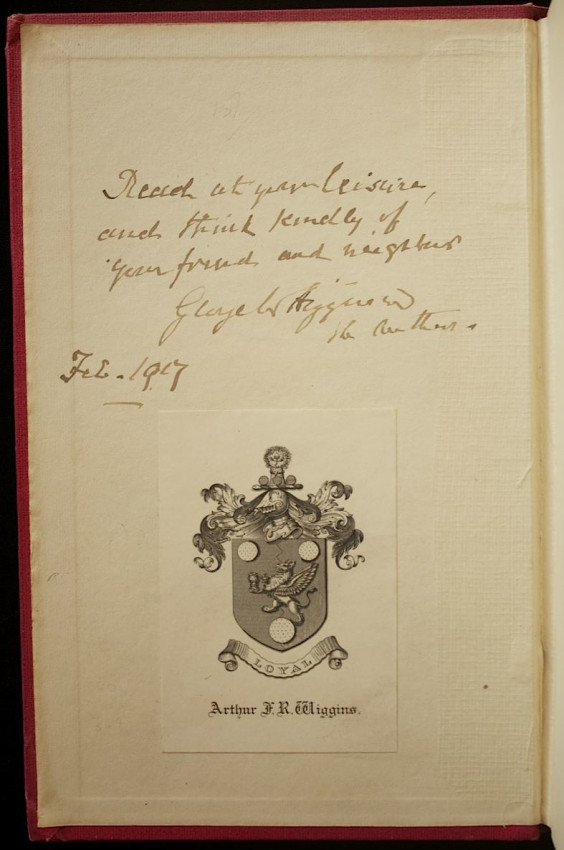 Read at your leisure,
and think kindly of
your friend and neighbor
George W Higginson
the author.
Feb. 1917
LOYAL
Arthur F. R. Wiggins.